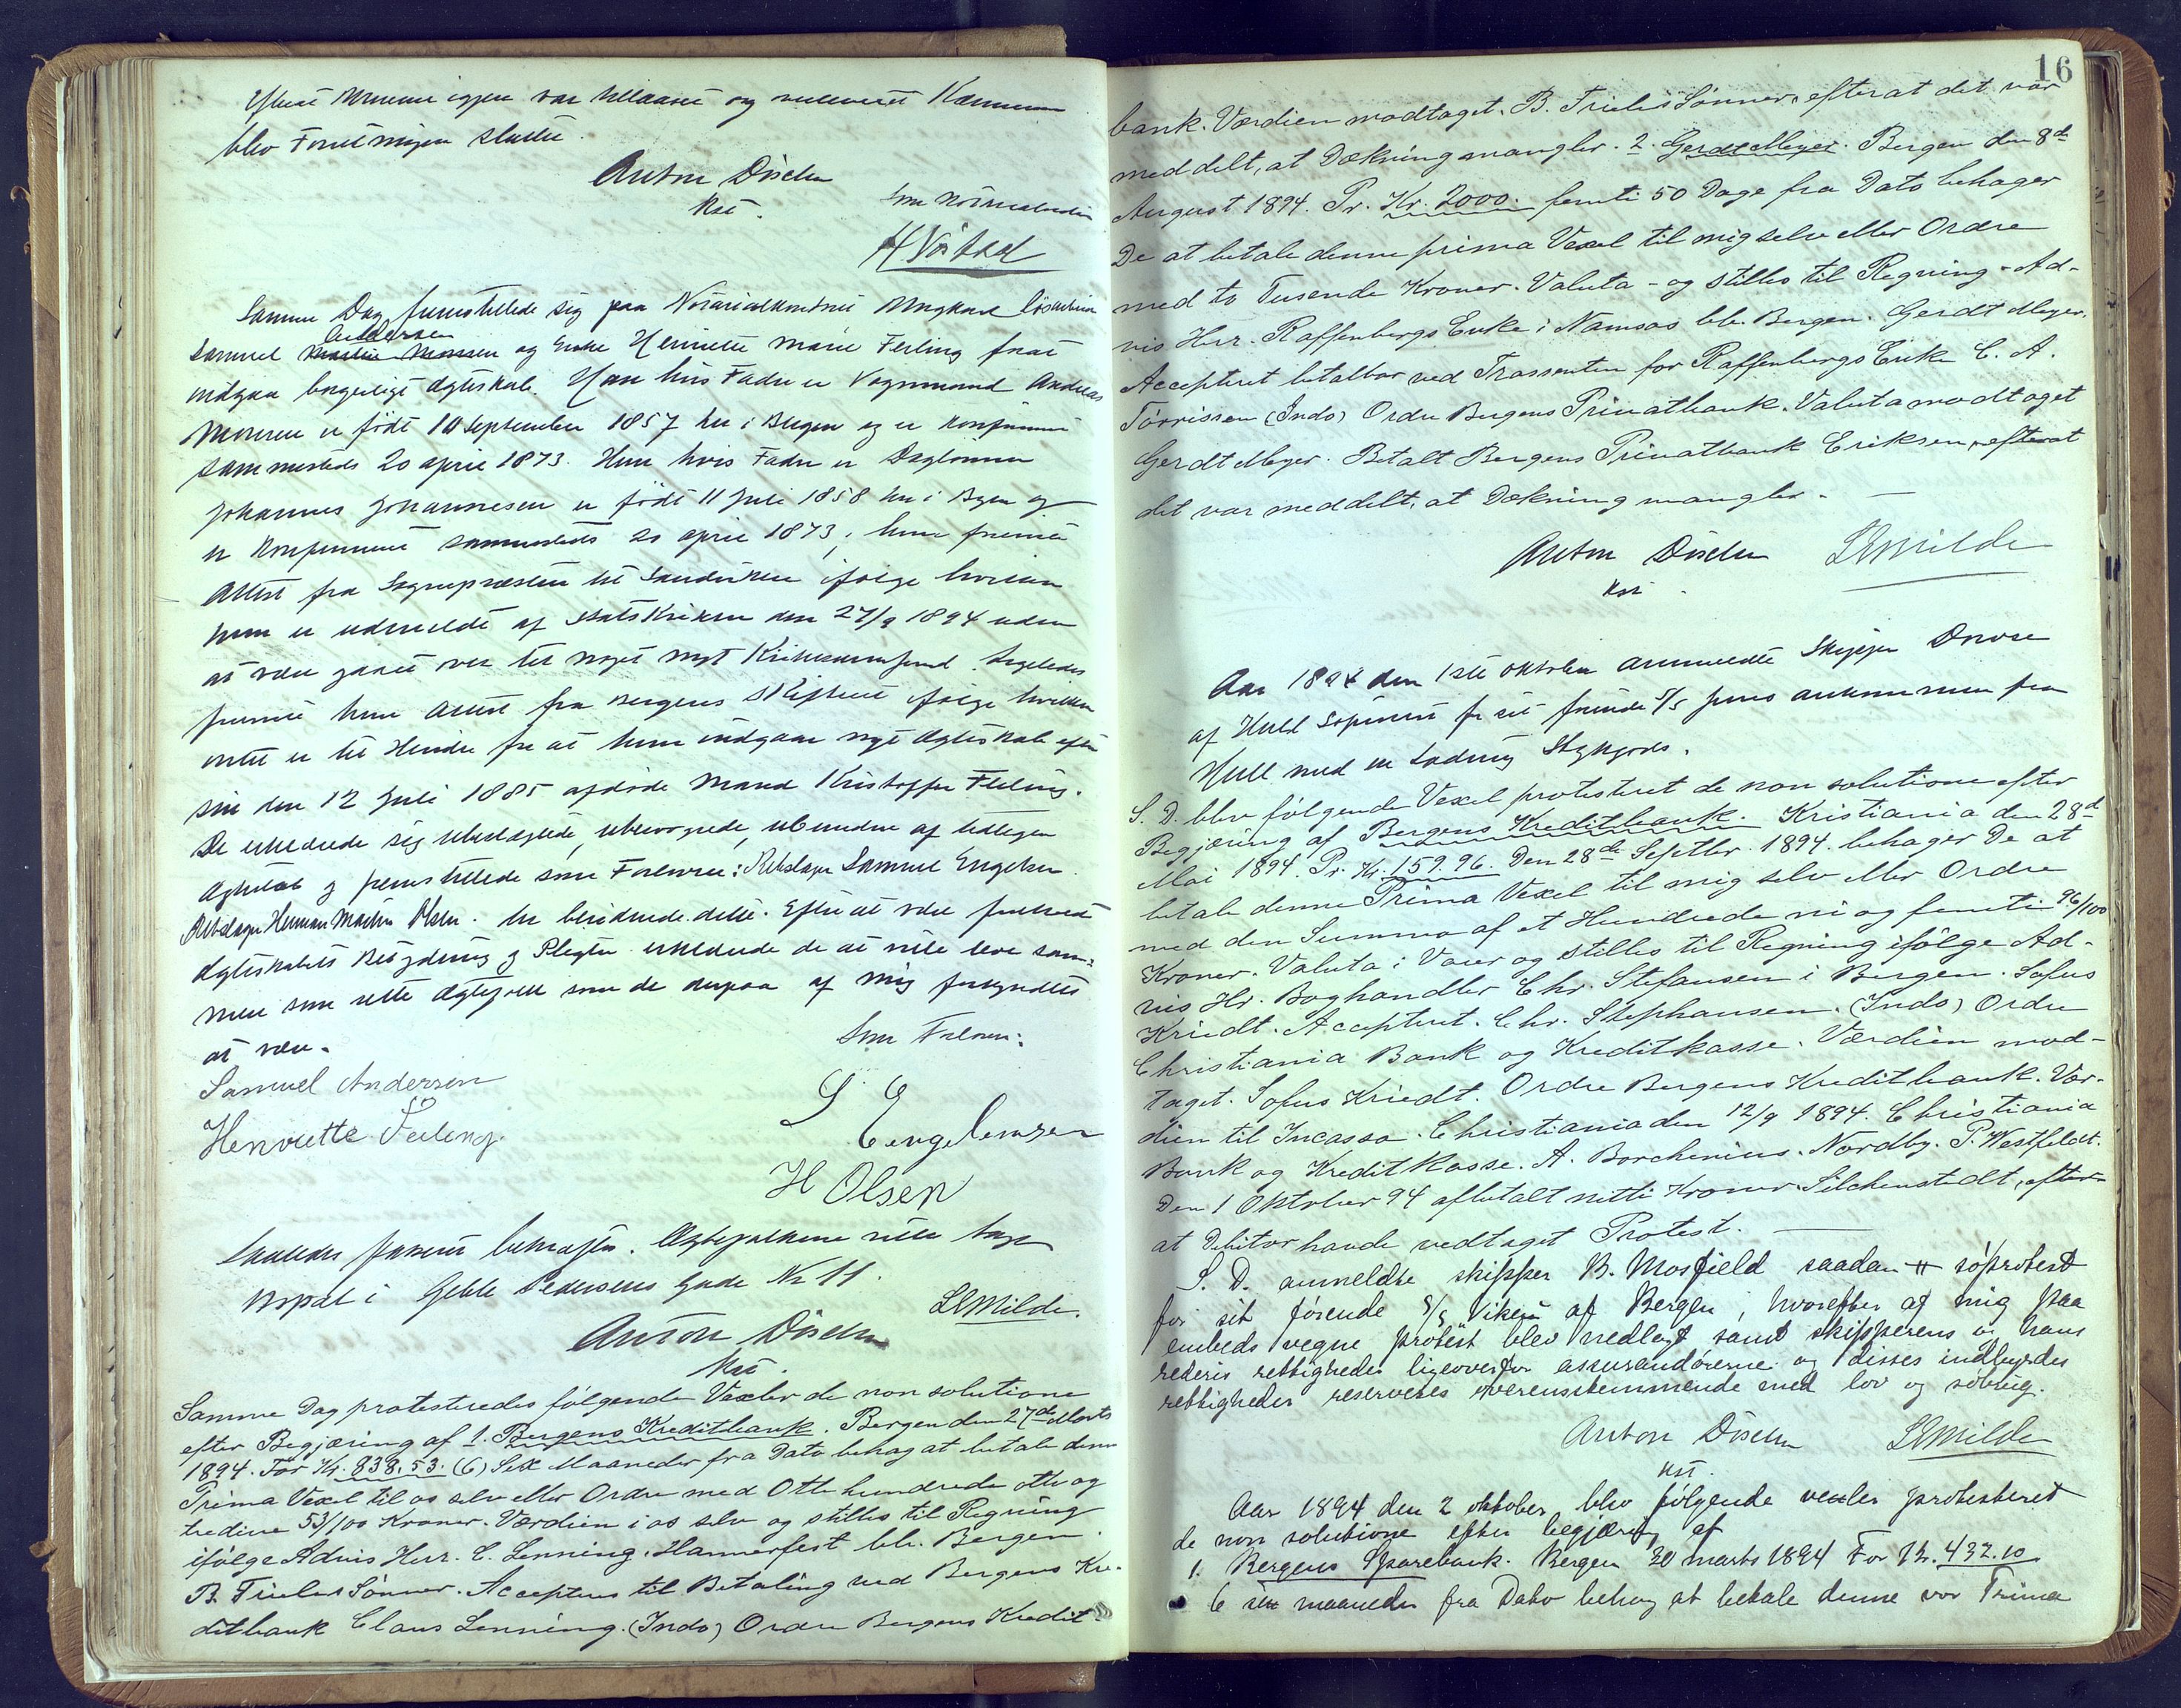 Efterat Murene igjen var tillaaset og
blev Forretningen sluttet.
Anton Döscher
Kst.
Som Notarialvidne
H Vöstad
Samme Dag fremstillede sig paa Notarialkontoret Ungkarl
Andersen
Samuel Martin Monsen og Enke Henriette Marie Ferling forat
indgaa borgerligt Ægteskab. Han hvis Fader er Vognmand Andreas
Monsen er født 14 September 1857 her i Bergen og er konfirmeret
sammesteds 20 april 1873. Hun hvis Fader er Daglønner
Johannes Johannesen er født 11 Juli 1858 her i Byen og
er konfirmeret sammesteds 20 april 1873; hun fremla
Attest fra Sognepræsten til Sandviken ifølge hvilken
hun er udmeldt af Statskirken den 27/9 1894 uden
at være gaaet over til noget nyt Kirkesamfund. Ligeledes
fremla hun Attest fra Bergens Skifteret ifølge hvilken
intet er til Hinder for at hun indgaar nyt Ægteskab efter
sin den 12 Juli 1885 afdøde Mand Kristoffer Ferling.
De erklærede sig ubeslægtede, ubesvogrede, ubundne af tidligere
Ægteskab og fremstillede som Forlovere: Rebslager Samuel Engelsen
Rebslager Herman Martin Olsen. der bevidnede dette. Efter at være foreholdt
Ægteskabets Betydning og Pligter erklærede de at ville leve sam-
men som rette Ægtefolk som de derpaa af mig forkyndtes
at være.
Som Forlovere:
Samuel Andersen
Henriette Ferling.
S Engelensen
H Olsen
Saaledes passeret bekræftes. Ægtefolkene ville tage
Bopæl i Geble Pedersens Gade No 11.
Anton Döscher
Kst.
LEMilde.
Samme Dag protesteredes følgende Vexler de non solutione
efter Begjæring af 1. Bergens Kreditbank. Bergen den 27de Marts
1894. For Kr. 838.53. (6) Sex Maaneder fra Dato behag at betale denne
Prima Vexel til os selv eller Ordre med Otte hundrede otte og
tredive 53/100 Kroner. Værdien i os selv og stilles til Regning
ifølge Advis Herr. C. Lenning. Hammerfest bli. Bergen.
B. Frieles Sønner. Accepteres til Betaling ved Bergens Kre-
ditbank Claus Lenning. (Indo) Ordre Bergens Kredit-
16
bank. Værdien modtaget. B. Frieles Sønner, efterat det var
meddelt, at Dækning mangler. 2. Gerdt Meyer. Bergen den 8de
August 1894. Pr. Kr. 2000. femti 50 Dage fra Dato behager
De at betale denne prima Vexel til mig selv eller Ordre
med to Tusende Kroner. Valuta - og stilles til Regning - Ad-
vis Herr. Raffenbergs Enke i Namsos bli. Bergen. Gerdt Meyer.
Accepteret betalbar ved Trassenten for Raffenbergs Enke C. A.
Törrissen (Indo) Ordre Bergens Privatbank. Valuta modtaget
Gerdt Meyer. Betalt Bergens Privatbank Eriksen, efterat
det var meddelt, at Dækning mangler. —
Anton Döscher
Kst.
LEMilde
Aar 1894 den 1ste Oktober anmeldte Skipper
af Hull Söprotest for sit førende S/S Juno ankommen fra
Hull med en Ladning Stykgods.
S. D. blev følgende Vexel protesteret de non solutione efter
Begjæring af Bergens Kreditbank. Kristiania den 28de
Mai 1894. Pr. Kr. 159.96. Den 28de Septbr. 1894. behager De at
betale denne Prima Vexel til mig selv eller Ordre
med den Summa af et Hundrede ni og femti 96/100
Kroner. Valuta i Varer og stilles til Regning ifölge Ad-
vis Hr. Boghandler Chr. Stefansen i Bergen. Sofus
Kriedt. Accepteret. Chr. Stephansen. (Indo) Ordre
Christiania Bank og Kreditkasse. Værdien mod-
taget. Sofus Kriedt. Ordre Bergens Kreditbank. Vær-
dien til Incasso. Christiania den 12/9 1894. Christiania
Bank og Kreditkasse. A. Borchenius. Nordby. P. Westfeldt.
Den 1 Oktober 94 afbetalt nitti Kroner Silchenstedt, efter-
at Debitor havde vedtaget Protest. —
S. D. anmeldte skipper B. Mosfjeld saadan söprotest
for sit förende S/S Viken af Bergen, hvorefter af mig paa
embeds vegne protest blev nedlagt samt skipperens og hans
rederis rettigheder ligeoverfor assurandörerne og disses indbyrdes
rettigheder reserveres overensstemmende med lov og sövbug.
Anton Döscher
Kst.
LEMilde
Aar 1894 den 2 oktober blev følgende vexler protesteret
de non solutione efter begjæring af
1. Bergens Sparebank. Bergen 30 marts 1894 For Kr. 432.10
6 sex maaneder fra Dato behag at betale denne vor Prima